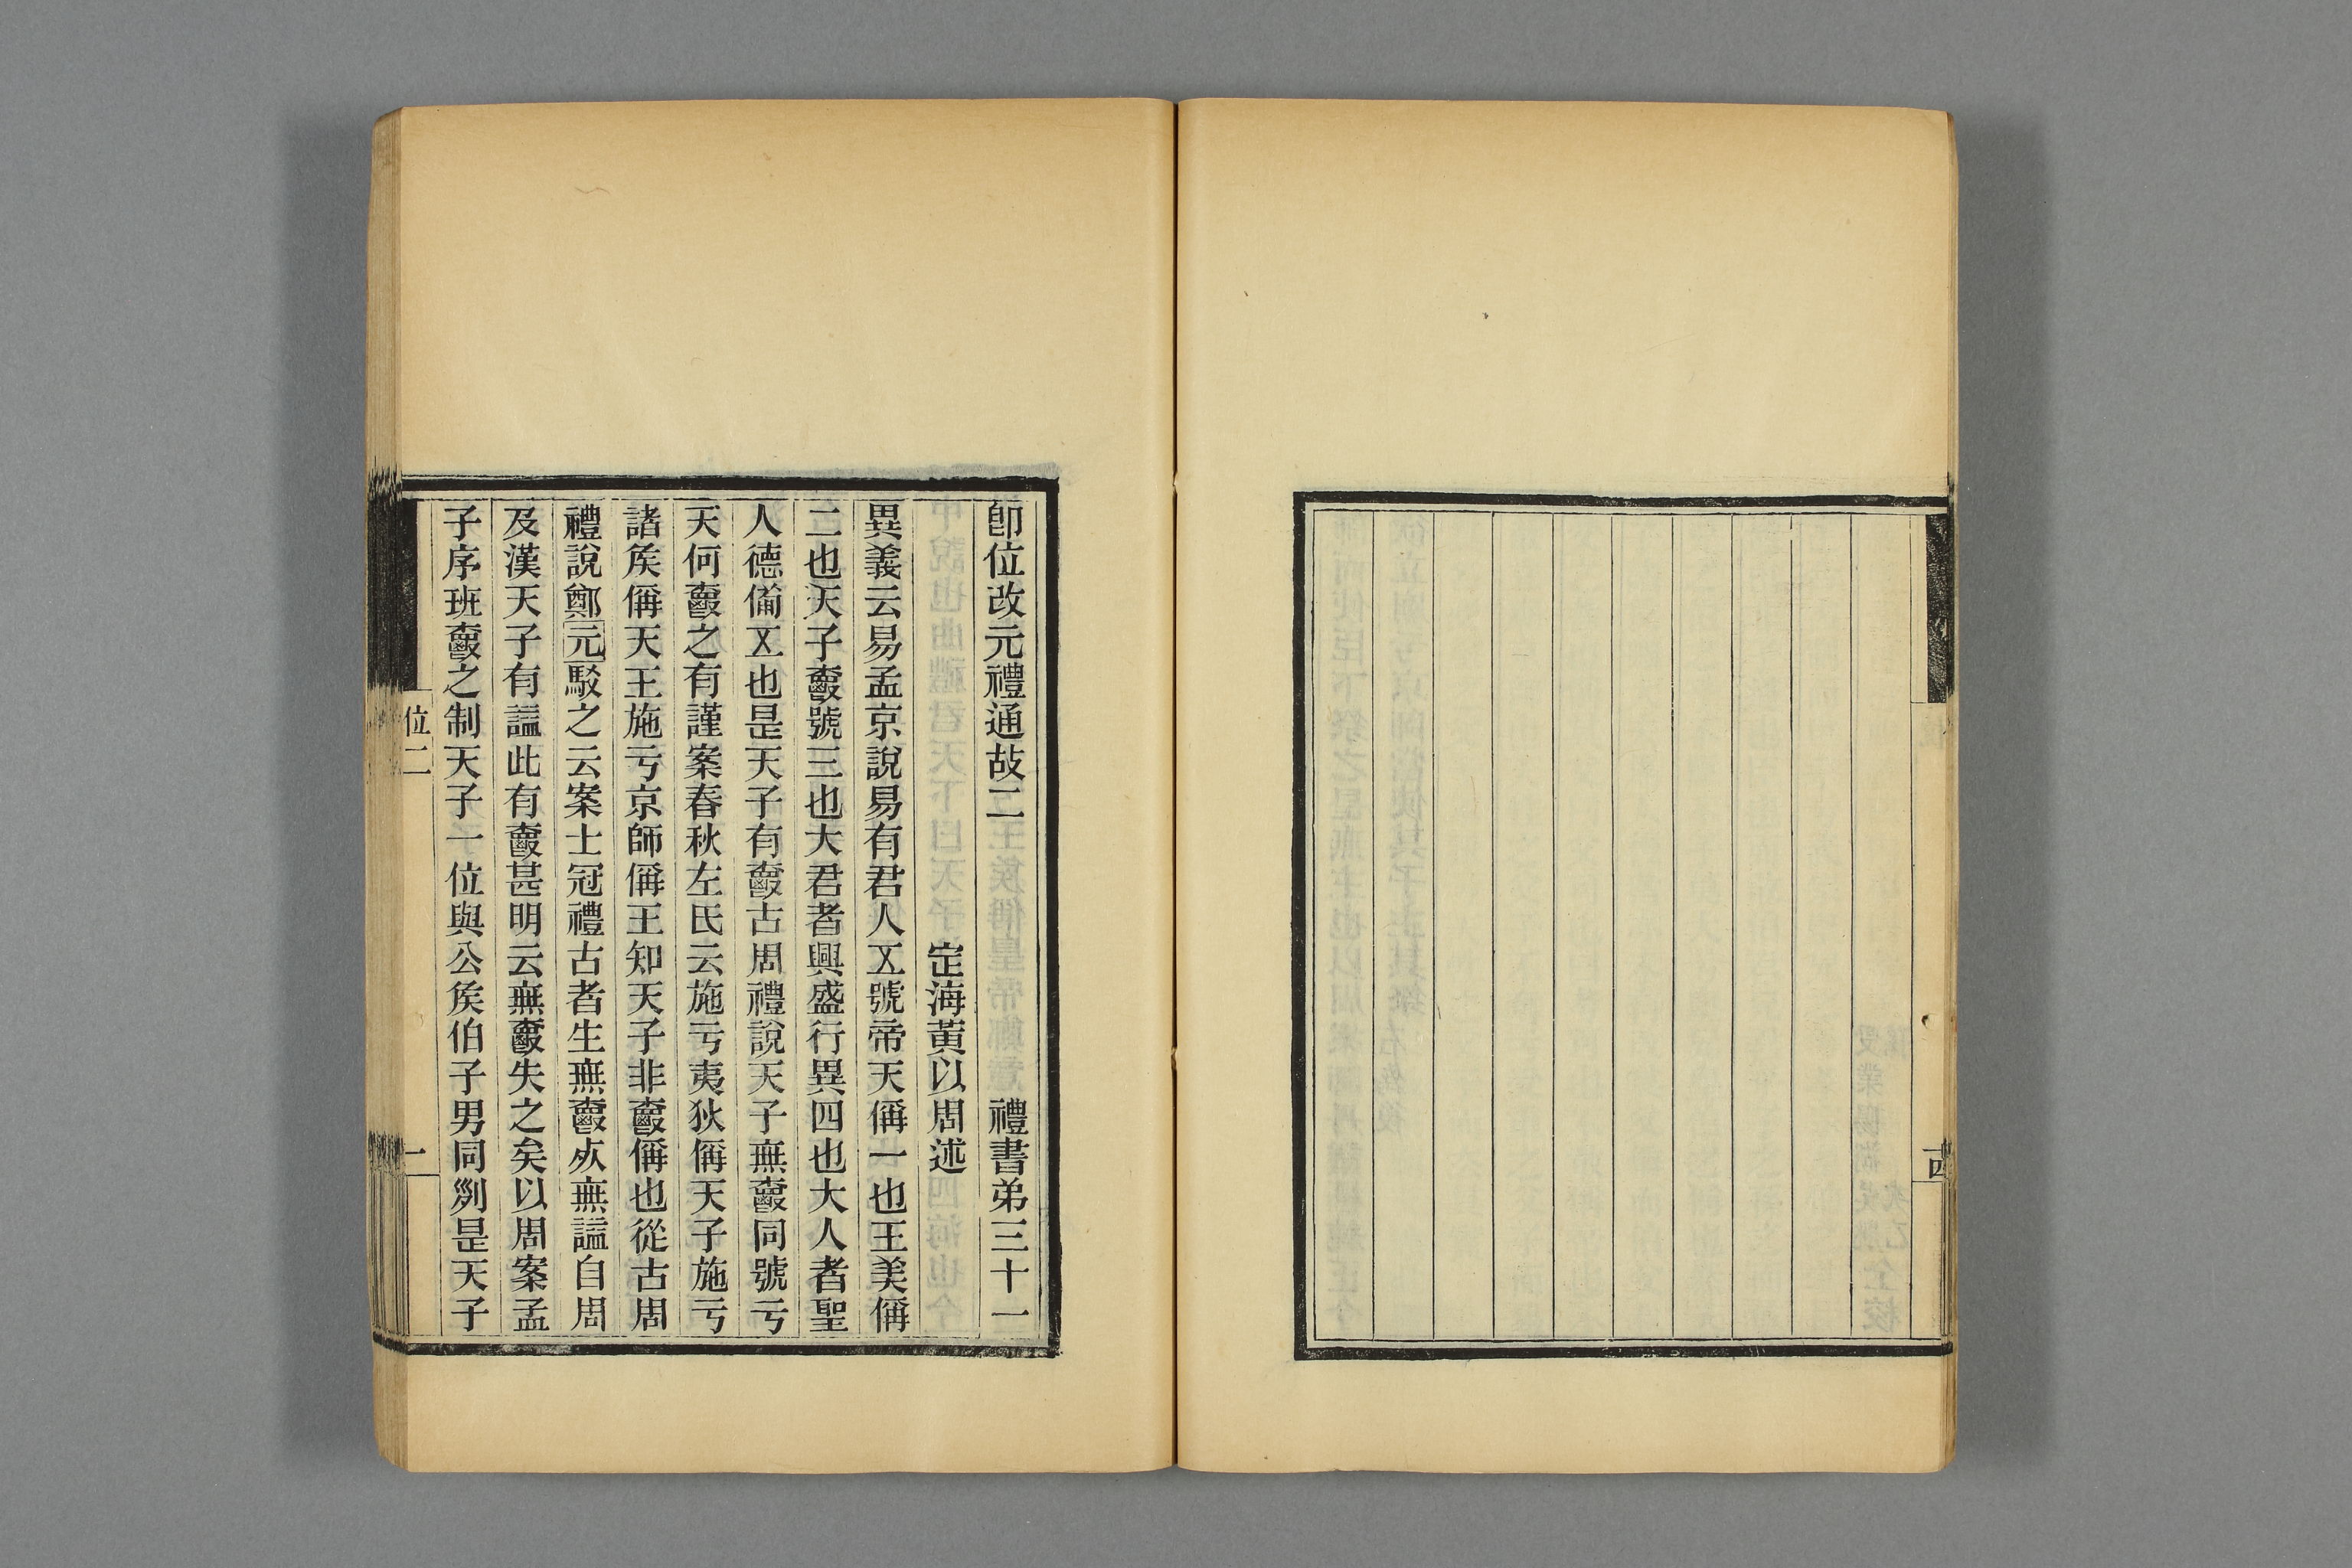 十四
卽位改元禮通故二 禮書弟三十一
定海黃以周述
異義云易孟京說易有君人五號帝天偁一也王美偁
二也天子爵號三也大君者興盛行異四也大人者聖
人德備五也是天子有爵古周禮說天子無爵同號亏
天何爵之有謹案春秋左氏云施亏夷狄偁天子施亏
諸矦偁天王施亏京師偁王知天子非爵偁也從古周
禮說鄭元駁之云案士冠禮古者生無爵𣦸無謚自周
及漢天子有謚此有爵甚明云無爵失之矣以周案孟
子序班爵之制天子一位與公矦伯子男同𠛱是天子
位二
一